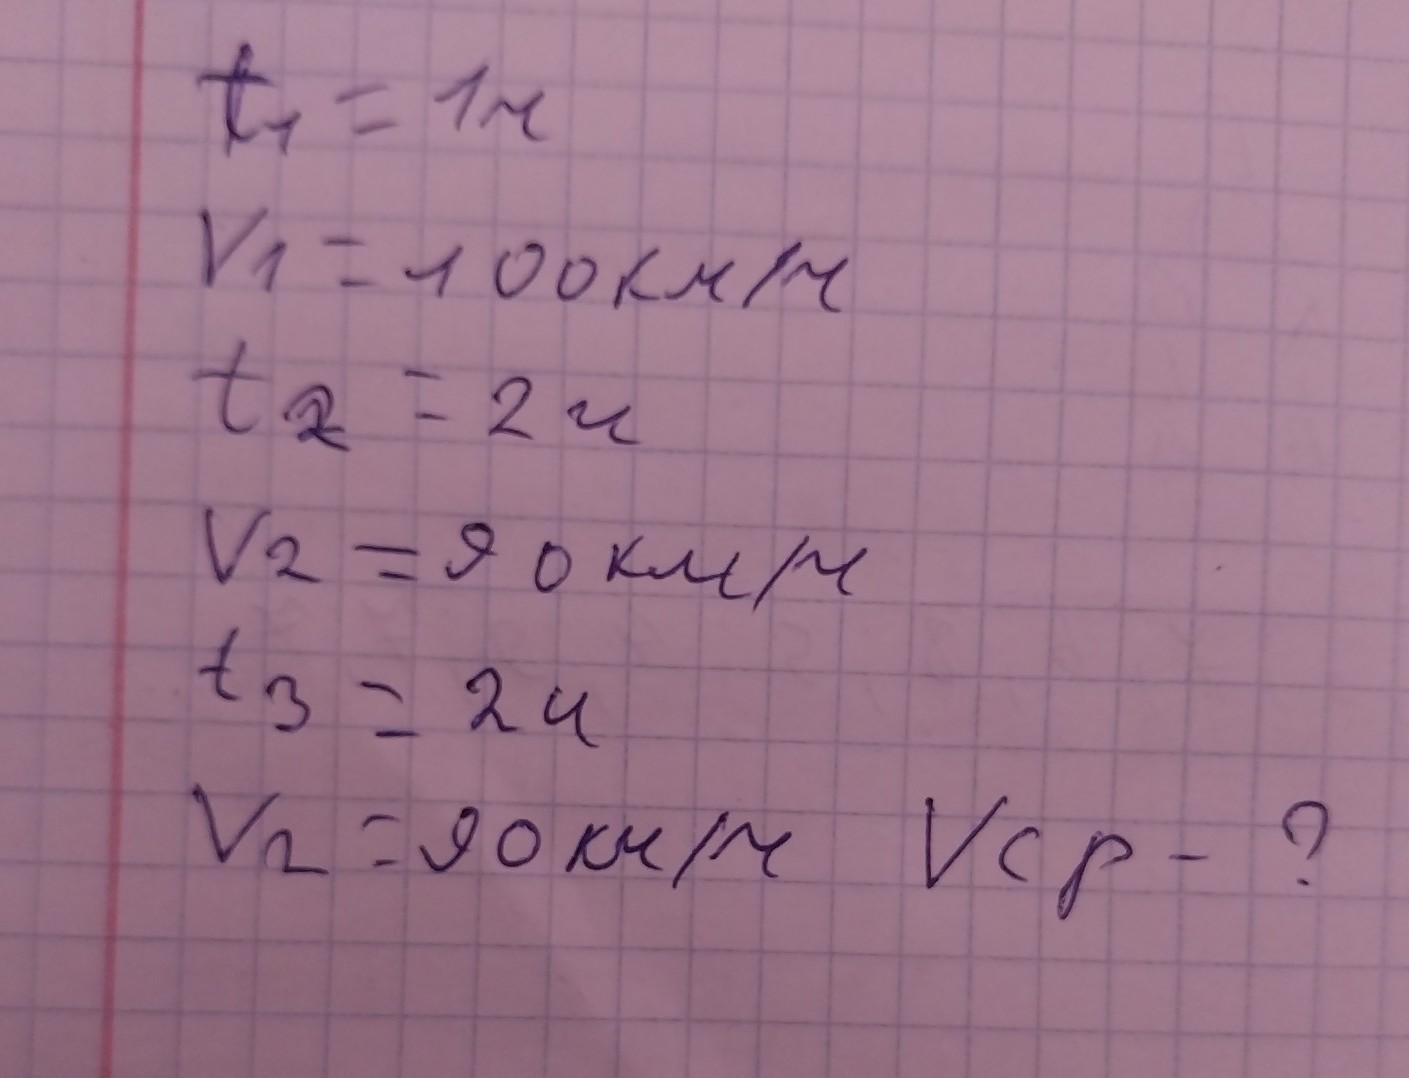 t₁ = 1ч
V₁ = 100км/ч
t₂ = 2ч
V₂ = 90км/ч
t₃ = 2ч
V₂ = 90км/ч Vср - ?